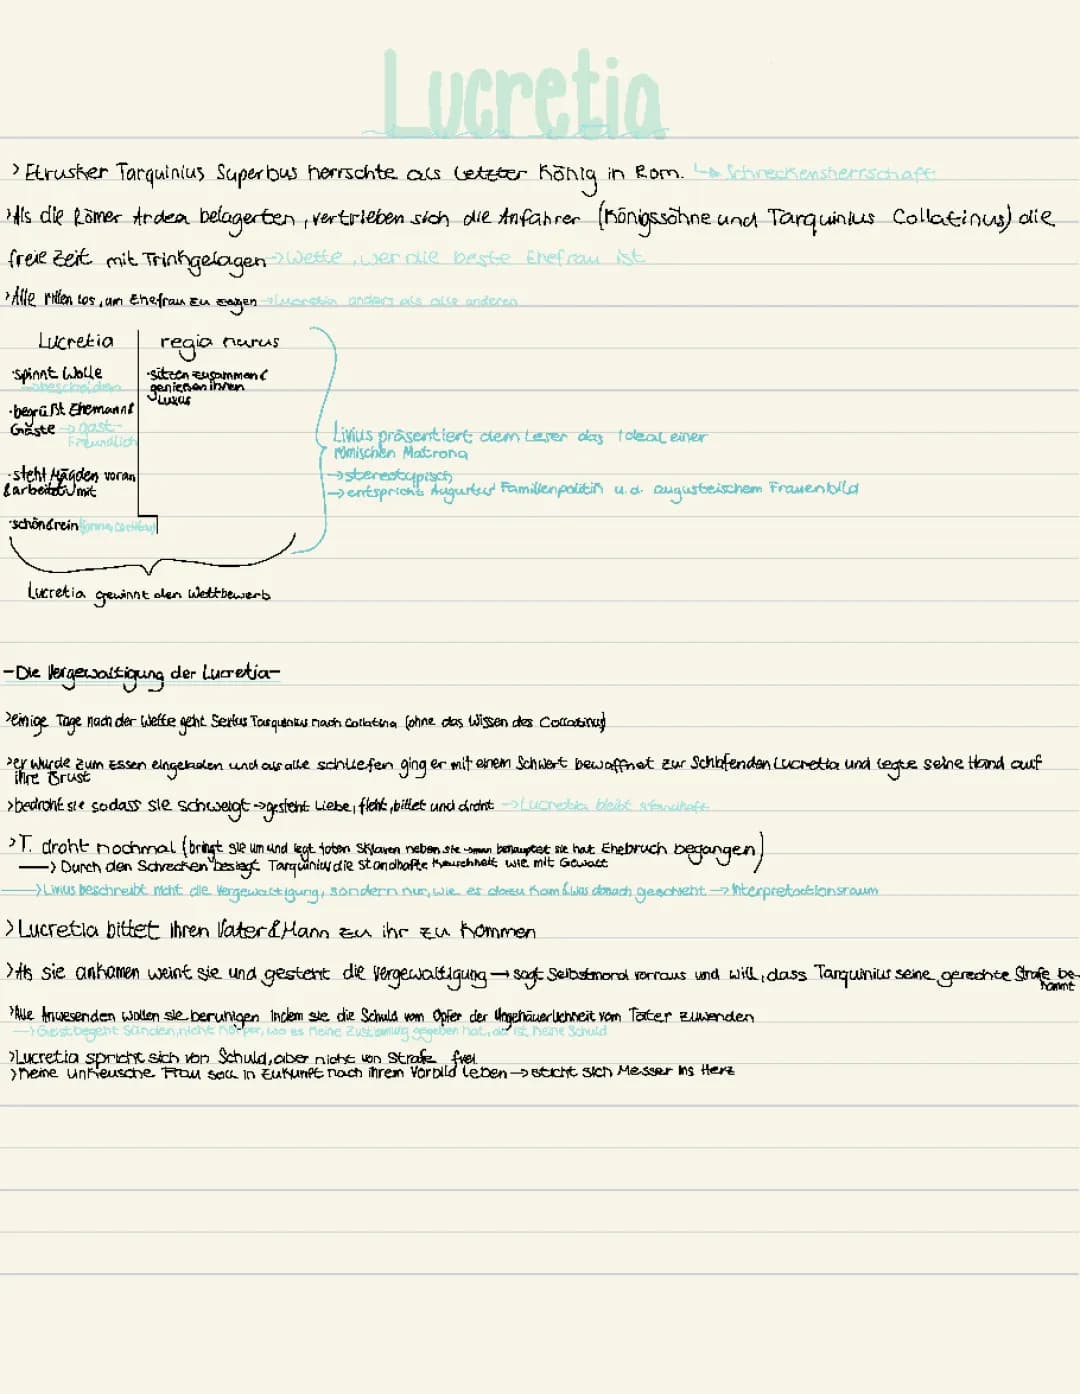 Lucretia
> Etrusker Tarquinius Superbus herrschte als letzter König in Rom. ↳ Schreckensherrschaft
> Als die Römer Ardea belagerten, vertrieben sich die Anführer (Königssöhne und Tarquinius Collatinus) die
freie Zeit mit Trinkgelagen → Wette, wer die beste Ehefrau ist
> Alle ritten los, um Ehefrau zu → Lucretia anders als alle anderen
Lucretia
· spinnt Wolle
→ bescheiden
· begrüßt Ehemann &
Gäste → gast-
freundlich
· steht Mägden voran
& arbeitet mit
· schön & rein
regia nurus
· sitzen zusammen &
genießen ihren
Luxus
Livius präsentiert dem Leser das Ideal einer
römischen Matrona
→ stereotypisch
→ entspricht Augustus' Familienpolitik u. d. augusteischem Frauenbild
Lucretia gewinnt den Wettbewerb
- Die Vergewaltigung der Lucretia -
> einige Tage nach der Wette geht Sextus Tarquinius nach Collatina (ohne das Wissen des Collatinus)
> er wurde zum Essen eingeladen und als alle schliefen ging er mit einem Schwert bewaffnet zur Schlafenden Lucretia und legte seine Hand auf
ihre Brust
> bedroht sie sodass sie schweigt → gesteht Liebe, fleht, bittet und droht → Lucretia bleibt standhaft
> T. droht nochmal (bringt sie um und legt toten Sklaven neben sie → man behauptet sie hat Ehebruch begangen)
→ Durch den Schrecken besiegt Tarquinius die standhafte Keuschheit wie mit Gewalt
→ Livius beschreibt nicht die Vergewaltigung, sondern nur, wie es dazu kam & was danach geschieht → Interpretationsraum
> Lucretia bittet ihren Vater & Mann zu ihr zu kommen
> Als sie ankamen weint sie und gesteht die Vergewaltigung → sagt Selbstmord vorraus und will, dass Tarquinius seine gerechte Strafe be-
kommt
> Alle Anwesenden wollen sie beruhigen indem sie die Schuld vom Opfer der Ungehäuerlichkeit vom Täter zuwenden
→ Geist begeht Sünden, nicht Körper, wo es keine Zustimmung gegeben hat, da ist keine Schuld
> Lucretia spricht sich von Schuld, aber nicht von Strafe frei
> keine unkeusche Frau soll in Zukunft nach ihrem Vorbild leben → sticht sich Messer ins Herz